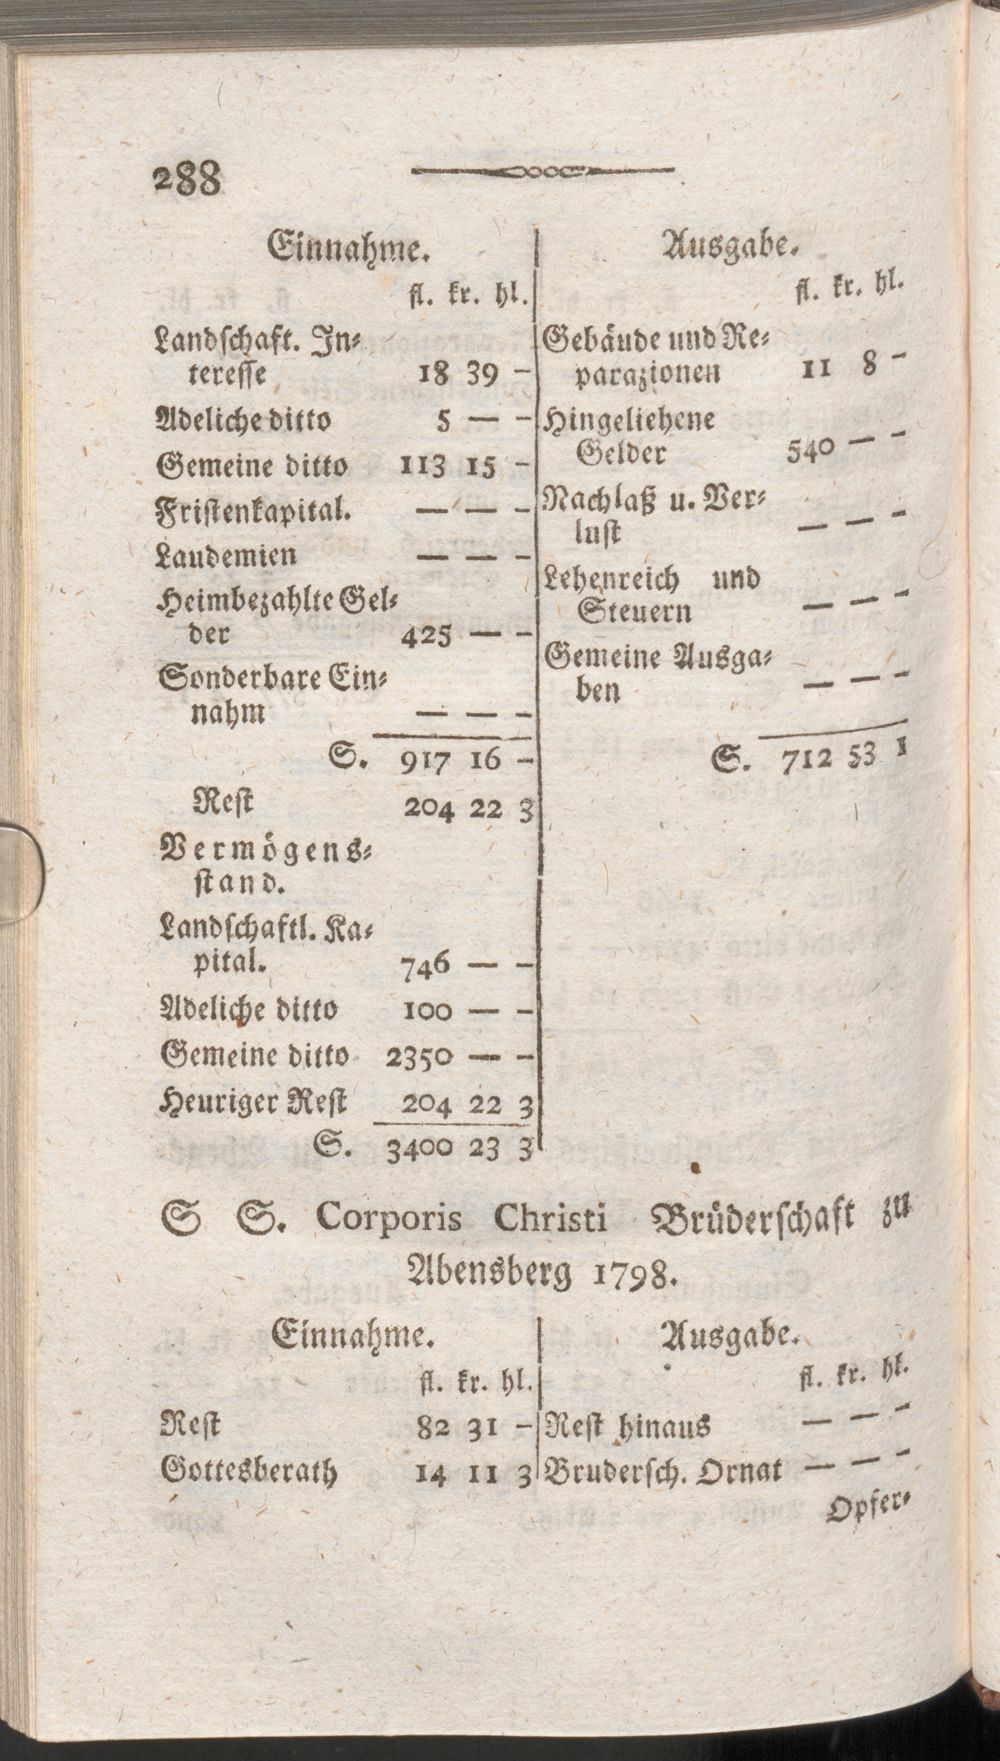 288
Einnahme.
fl. kr. hl.
Landſchaft. In⸗
tereſſe 18 39 –
Adeliche ditto 5 — –
Gemeine ditto 113 15 –
Friſtenkapital. — — –
Laudemien — — –
Heimbezahlte Gel⸗
der 425 — –
Sonderbare Ein⸗
nahm — — –
S. 917 16 –
Reſt 204 22 3
Vermögens⸗
ſtand.
Landſchaftl. Ka⸗
pital. 746 — –
Adeliche ditto 100 — –
Gemeine ditto 2350 — –
Heuriger Reſt 204 22 3
S. 3400 23 3
Ausgabe.
fl. kr. hl.
Gebäude und Re⸗
parazionen 11 8 –
Hingeliehene
Gelder 540 — –
Nachlaß u. Ver⸗
luſt — — –
Lehenreich und
Steuern — — –
Gemeine Ausga⸗
ben — — –
S. 712 53 1
S S. Corporis Christi Brüderſchaft zu
Abensberg 1798.
Einnahme.
fl. kr. hl.
Reſt 82 31 –
Gottesberath 14 11 3
Ausgabe.
fl. kr. hl.
Reſt hinaus — — –
Bruderſch. Ornat — — –
Opfer⸗